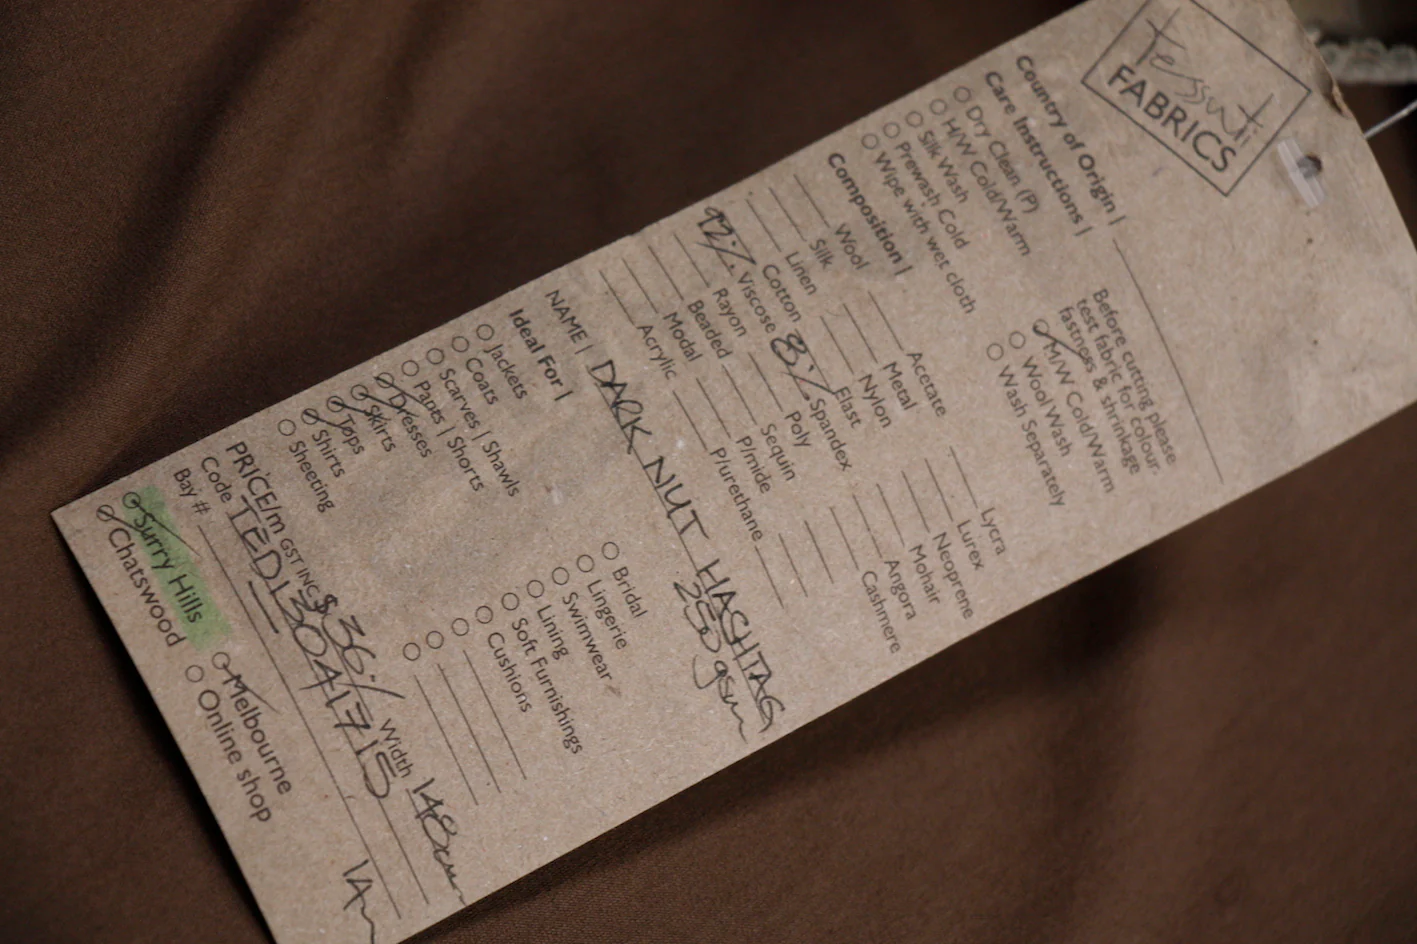 tessuti
FABRICS
Country of Origin |
Care Instructions |
Before cutting please
test fabric for colour
fastness & shrinkage
Dry Clean (P)
H/W Cold/Warm
Silk Wash
Prewash Cold
Wipe with wet cloth
M/W Cold/Warm
Wool Wash
Wash Separately
Composition |
Wool Acetate Lycra
Silk Metal Lurex
Linen Nylon Neoprene
Cotton Elast Mohair
92% Viscose 8% Spandex Angora
Rayon Poly Cashmere
Beaded Sequin
Modal P/mide
Acrylic P/urethane
NAME | DARK NUT HASHTAG
250gsm
Ideal For |
Jackets Bridal
Coats Lingerie
Scarves | Shawls Swimwear
Pants | Shorts Lining
Dresses Soft Furnishings
Skirts Cushions
Tops
Shirts
Sheeting
PRICE/m GST INC $36./ Width 148cm
Code TED13041715
Bay #
Surry Hills Melbourne
Chatswood Online shop